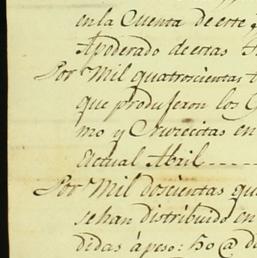 en la Cuenta de este
Apoderado de esas
Por Mil quatrocientas
que produjeron los
mo y Cruzecitas en
Actual Abril
Por Mil doscientas qu
se han distribuido en
didas á peso: 50 @ d